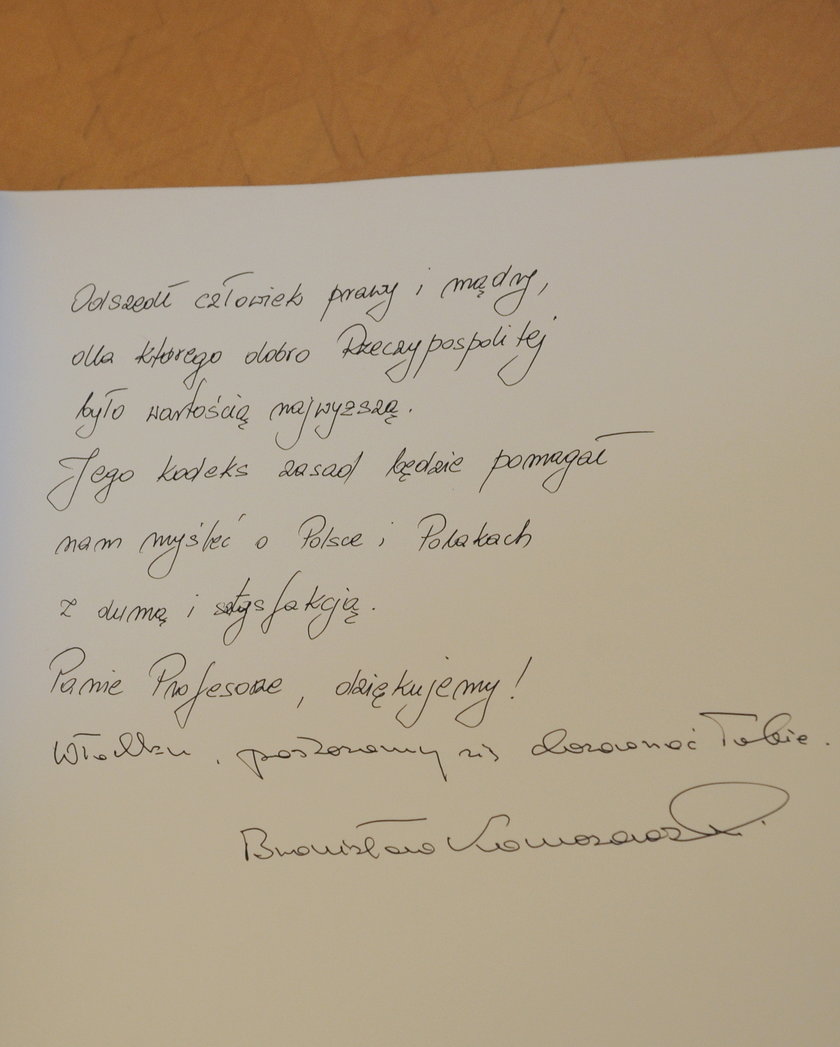 Odszedł człowiek prawy i mądry,
dla którego dobro Rzeczypospolitej
było wartością najwyższą.
Jego kodeks zasad będzie pomagał
nam myśleć o Polsce i Polakach
z dumą i satysfakcją.
Panie Profesorze, dziękujemy!
Włodku, postaramy się dorównać Tobie.
Bronisław Komorowski